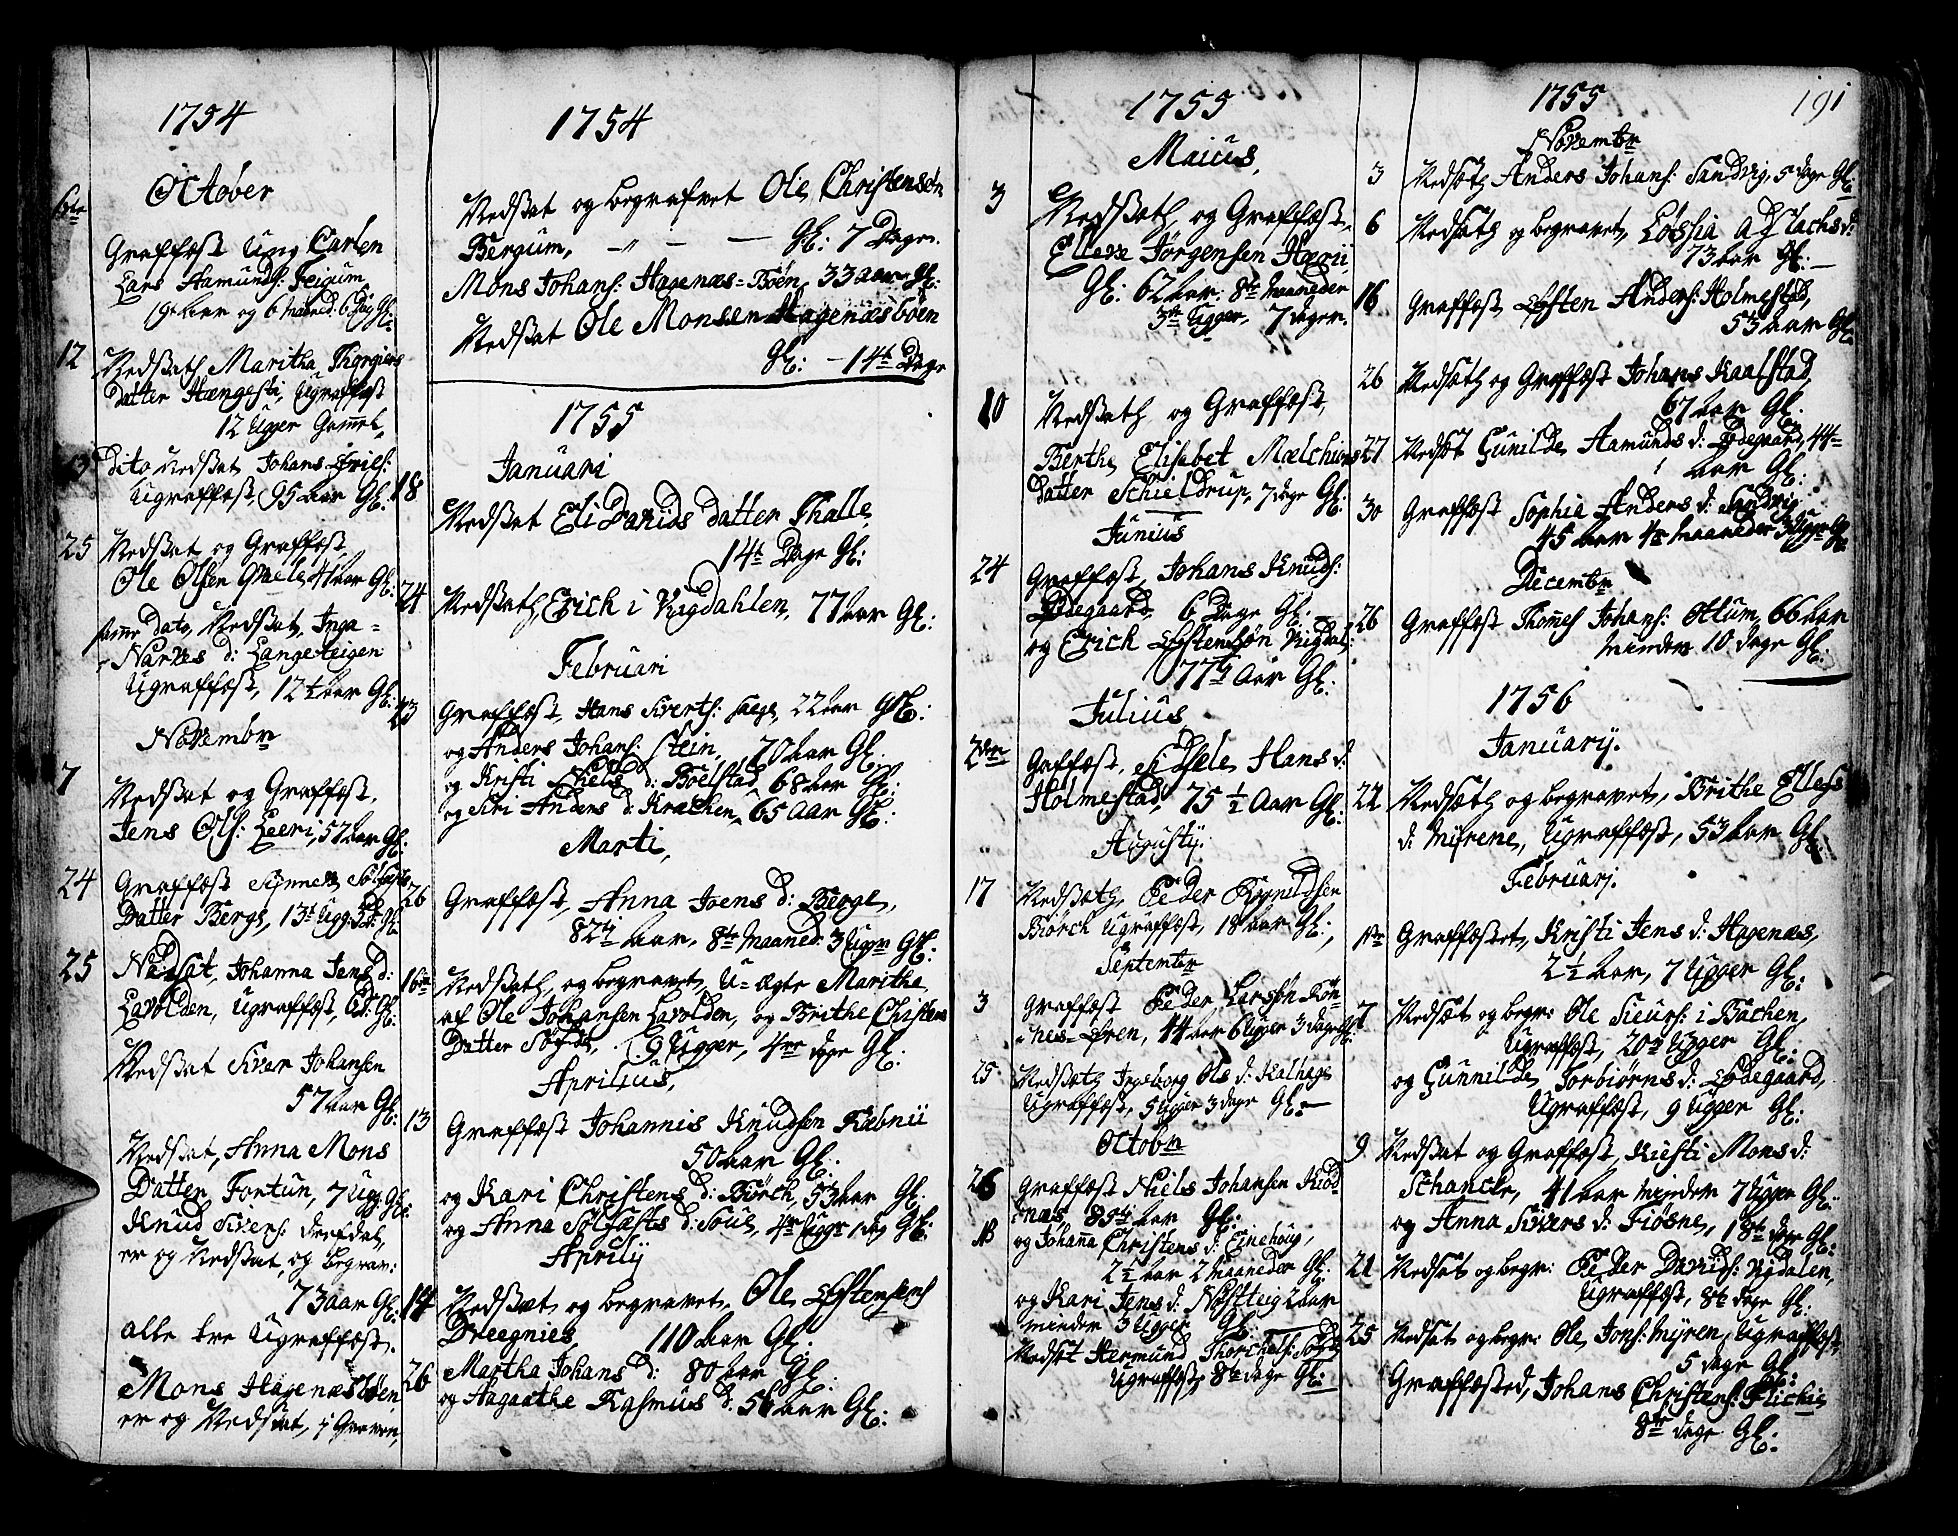 1754
October
6te
Graffæst Ung Carlen
Lars Aamunds: Feigum
19 Aar og 6 Maaned: 6 Dag Gl:
12 Nedsath Maritha Thorgiers
datter Hængesti, Ugraffæst
12 Uger Gamel,
13 Dito Nedsat Johans
Ugraffæst, 95 Aar Gl:
25 Nedsat og Graffæst,
Ole Olsen 41 Aar Gl:
samme Dato, Nedsat, Inga
Narves d: Langesteigen
Ugraffæst, 12 ½ Aar Gl:
Novembr
7 Nedsat og Graffæst,
Jens Ols: Leeri, 57 Aar Gl:
24 Graffæst Synneve Solfæsts
Datter Berge, 13 Ugg:
25 Nedsat, Johanna Jens d:
Lavolden, Ugraffæst, 6 d: Gl:
Nedsat Siver Johansen
57 Aar Gl:
Nedsat, Anna Mons
Datter, Fortun, 7 Ug: Gl:
Knud Sivers:
er og Nedsat, og begrav:
73 aar Gl:
alle tre Ugraffæst.
Mons Hagenæsbøen
er og Nedsat, i Graven,
1754
Nedsat og begrafvet Ole Christensøn
Bergum, Gl: 7 Dage.
Mons Johans: Hagenæs=Bøen, 33 aar Gl:
Nedsat Ole Monsen Hagenæsbøen
Gl: – 14t Dage
1755
Januari
18 Nedsat Eli Davids datter Thalle,
14t Dage Gl:
24 Nedsath, Erich i Vigdahlen, 77 Aar Gl:
Februari
23 Graffæst, Hans Siverts: 22 Aar Gl:
og Anders Johans: Stein, 70 Aar Gl.
og Kristi Niels d: Bolstad, 68 Aar Gl:
og Siri Anders d: Krachen, 65 Aar Gl:
Marti,
26 Graffæst, Anna Joens d: Berge,
82 ¼ Aar, 8te Maaned 3 Ugr Gl:
16de Nedsath, og begravet, U=ægte Marithe
af Ole Johansen Lavolden, og Brithe Christens
Datter 9 Ugger, 4re dage Gl:
Aprilius,
13 Graffæst Johannis Knudsen Kæbnii
50 Aar Gl:
og Kari Christens d: Biørch, 53 Aar Gl:
og Anna Solfæsts d: 4re Ugger 1 dag Gl:
Aprily
14 Nedsat og begravet, Ole Østensens
Dreegnies, 110 Aar Gl:
26 Martha Johans d: 80 Aar Gl:
og Aagaathe Rasmus d. 56 Aar Gl:
1755
Maius,
3 Nedsath, og Graffæst,
Elleve Jørgensen
Gl: 62 Aar, 8te Maaneder
3de Ugger, 7 dage.
10 Nedsath, og Graffæst,
Berthe Elisebet Mælchiors
datter Schieldrup, 7 dage Gl:
Junius
24 Graffæst, Johans Knuds:
Ødegaard, 6 Dage Gl:
og Erich Østensøn Vigdal:
77 ¼ Aar Gl:
Julius,
2den Gaffæst, Sidsele Hans d:
Holmestad, 75 ½ Aar Gl:
Augusty:
17 Nedsath, Peder
Biørch Ugraffæst, 18 Aar Gl:,
Septembr
3 Graffæst Peder Larsøn Røn-
nes=Øren, 44 Aar 6 Uger 3 dage Gl:
25 Nedsath Ingeborg Ols d: Kalhage
Ugraffæst, 5 Ugger 3 dage Gl:
Octobr
26 Graffæst Niels Johansen Riød-
næs, 85 ¼ Aar Gl:
NB og Johanna Christens d: Einehoug,
2 ½ Aar 2 Maaneder Gl:
og Kari Jens d: 2 Aar
minder 3 Ugger Gl:
Nedset Hermund Thorchels:
Ugraffæst, 8te dage Gl:
1755 191
Novembr
3 Nedsath Anders Johans: Sandvig, 5 dage Gl:
6 Nedsath og begravet,
73 Aar Gl:
16 Graffæst Østen Anders: Holmestad,
53 Aar Gl:
26 Nedsath og Graffæst Johans Kaalstad,
67 Aar Gl.
27 Nedsat Gunilde Aamunds d: Ødegaard, 44
Aar Gl:
30 Graffæst Sophia Anders d: Sandvig
45 Aar 4re Maaneder
Decembr
26 Graffæst Thomes Johans: Ottum, 66 Aar
minder 10 dage Gl:
1756
Januarij.
22 Nedsath og begravet, Brithe Ellefs
d: Myrene, Ugraffæst, 53 Aar Gl
Februarj.
1ste Graffæstet, Kristi Jens d: Hagenæs,
2 ½ Aar, 7 Ugger Gl:
7 Nedsat og begr: Ole Siurs: i Bachen,
Ugraffæst, 20 Ugger Gl:
og Gunnilde Torbiørns d: Ødegaard,
Ugraffæst, 9 Ugger Gl:
9. Nedsat og Graffæst, Kiesti Mons d:
Schancke, 41 Aar minder 7 Ugger Gl:
og Anna Sivers d: Fiøsne, 18te dage Gl:
21 Nedsat og begr: Peder Davids: Vigdalen,
Ugraffæst, 8te dage Gl:
25 Nedsat og begr: Ole, Jons: Myren, Ugraffæst,
5 dage Gl:
Graffæsted, Johans Christens:
8te dage Gl: